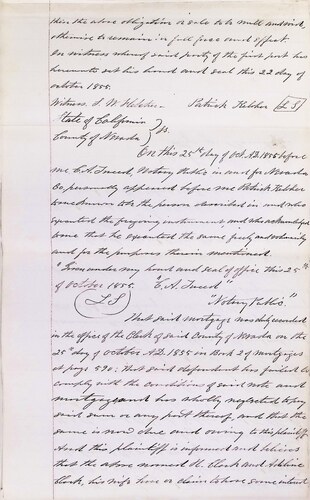 then the above obligation or sale to be null and void,
otherwise to remain in full force and effect.
In witness whereof said party of the first part has
hereunto set his hand and seal this 22 day of
october 1855.
Witness S. W. Fletcher Patrick Kelcher [LS]
State of California } ss.
County of Nevada
On this 25th day of Oct. A.D. 1855 before
me C. A. Tweed, Notary Public in and for Nevada
Co, personally appeared before me Patrick Kelcher
to me known to be the person described in and who
executed the foregoing instrument and who acknowledged
to me that he executed the same freely and voluntarily
and for the purposes therein mentioned.
"Given under my hand and seal of office this 25th
of October 1855. "C. A. Tweed"
(LS) "Notary Public"
That said mortgage was duly recorded
in the office of the Clerk of said County of Nevada on the
25th day of October A.D. 1855 in Book 2 of mortgages
at page 590; that said defendant has failed to
comply with the conditions of said note and
mortgage and has wholly neglected to pay
said sum or any part thereof, and that the
same is now due and owing to this plaintiff
And this plaintiff is informed and believes
that the above named H. Clark and Adeline
Clark, his wife have or claim to have some interest